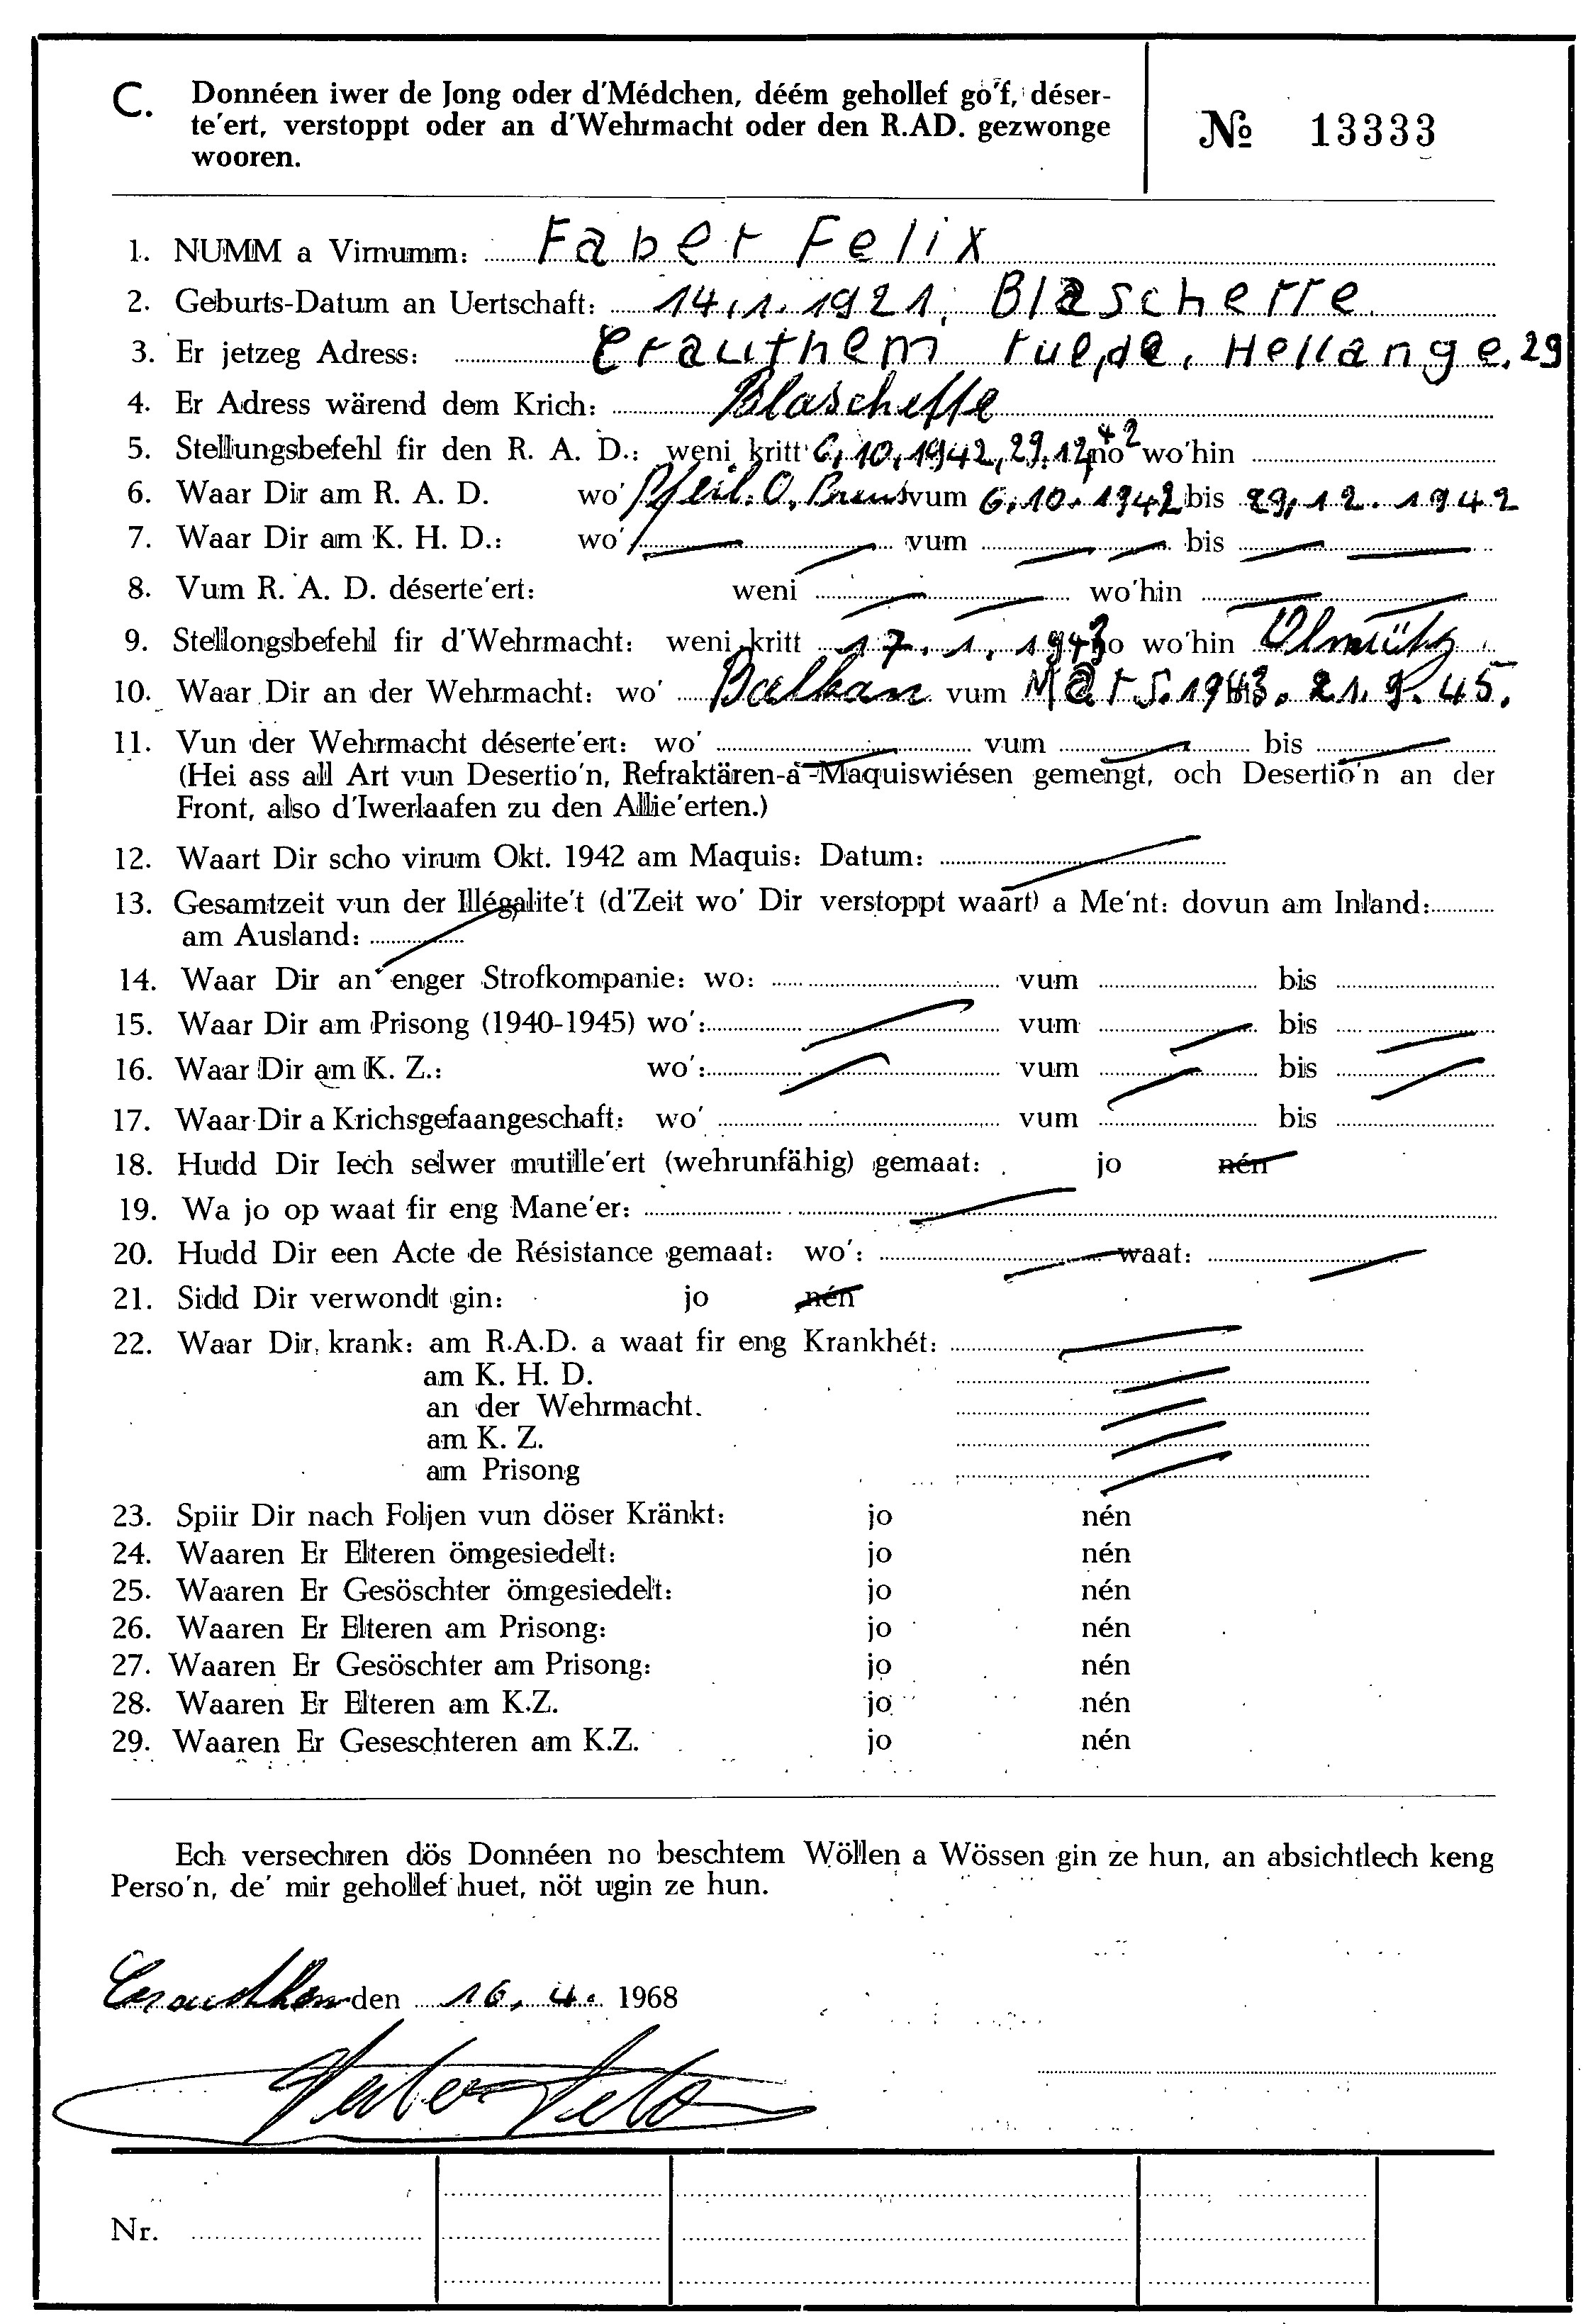 C. Donnéen iwer de Jong oder d'Médchen, déém gehollef go'f, déser-
te'ert, verstoppt oder an d'Wehrmacht oder den R.AD. gezwonge
wooren.
№ 13333
1. NUMM a Virnumm: Faber Felix
2. Geburts-Datum an Uertschaft: 14.1.1921. Blaschette.
3. Er jetzeg Adress: Crauthem rue, de, Hellange. 29
4. Er Adress wärend dem Krich: Blaschette
5. Stellungsbefehl fir den R. A. D.: weni kritt 6.10.1942, 29.12 42 no wo'hin
6. Waar Dir am R. A. D. wo' Pfeil. O. vum 6.10.1942 bis 29.12.1942
7. Waar Dir am K. H. D.: wo' vum bis
8. Vum R. A. D. déserte'ert: weni wo'hin
9. Stellongsbefehl fir d'Wehrmacht: weni kritt 17.1.1943 no wo'hin Olmütz
10. Waar Dir an der Wehrmacht: wo' Balkan vum Mars.1943. bis 21.9.45.
11. Vun der Wehrmacht déserte'ert: wo' vum bis
(Hei ass all Art vun Desertio'n, Refraktären-a-Maquiswiésen gemengt, och Desertio'n an der
Front, also d'Iwerlaafen zu den Allie'erten.)
12. Waart Dir scho virum Okt. 1942 am Maquis: Datum:
13. Gesamtzeit vun der Illégalite't (d'Zeit wo' Dir verstoppt waart) a Me'nt: dovun am Inland:
am Ausland:
14. Waar Dir an enger Strofkompanie: wo: vum bis
15. Waar Dir am Prisong (1940-1945) wo': vum bis
16. Waar Dir am K. Z.: wo': vum bis
17. Waar Dir a Krichsgefaangeschaft: wo' vum bis
18. Hudd Dir Iech selwer mutille'ert (wehrunfähig) gemaat: jo nén
19. Wa jo op waat fir eng Mane'er:
20. Hudd Dir een Acte de Résistance gemaat: wo': waat:
21. Sidd Dir verwondt gin: jo nén
22. Waar Dir krank: am R.A.D. a waat fir eng Krankhét:
am K. H. D.
an der Wehrmacht.
am K. Z.
am Prisong
23. Spiir Dir nach Foljen vun döser Kränkt: jo nén
24. Waaren Er Elteren ömgesiedelt: jo nén
25. Waaren Er Gesöschter ömgesiedelt: jo nén
26. Waaren Er Elteren am Prisong: jo nén
27. Waaren Er Gesöschter am Prisong: jo nén
28. Waaren Er Elteren am K.Z. jo nén
29. Waaren Er Geseschteren am K.Z. jo nén
Ech versechren dös Donnéen no beschtem Wöllen a Wössen gin ze hun, an absichtlech keng
Perso'n, de' mir gehollef huet, nöt ugin ze hun.
Crauthem den 16. 4. 1968
Nr.